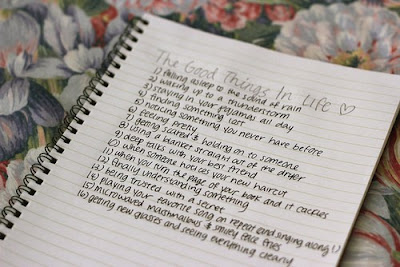 The Good Things In Life ♡
1) falling asleep to the sound of rain
2) waking up to a thunderstorm
3) staying in your pajamas all day
4) finding something lost
5) noticing something you never have before
6) feeling pretty
7) getting scared & holding on to someone
8) using a blanket straight out of the dryer
9) deep talks with your best friend
10) when someone notices your new haircut
11) when you turn the page of your book and it cackles
12) finally understanding something
13) being trusted with a secret
14) playing your favorite song on repeat and singing along :)
15) microwaved marshmallows & smiley face fries
16) getting new glasses and seeing everything clearly